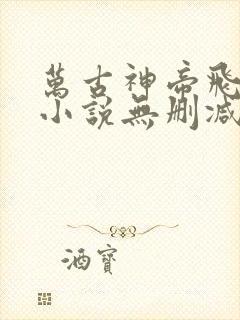 萬古神帝飛
小說無刪減
酒寶